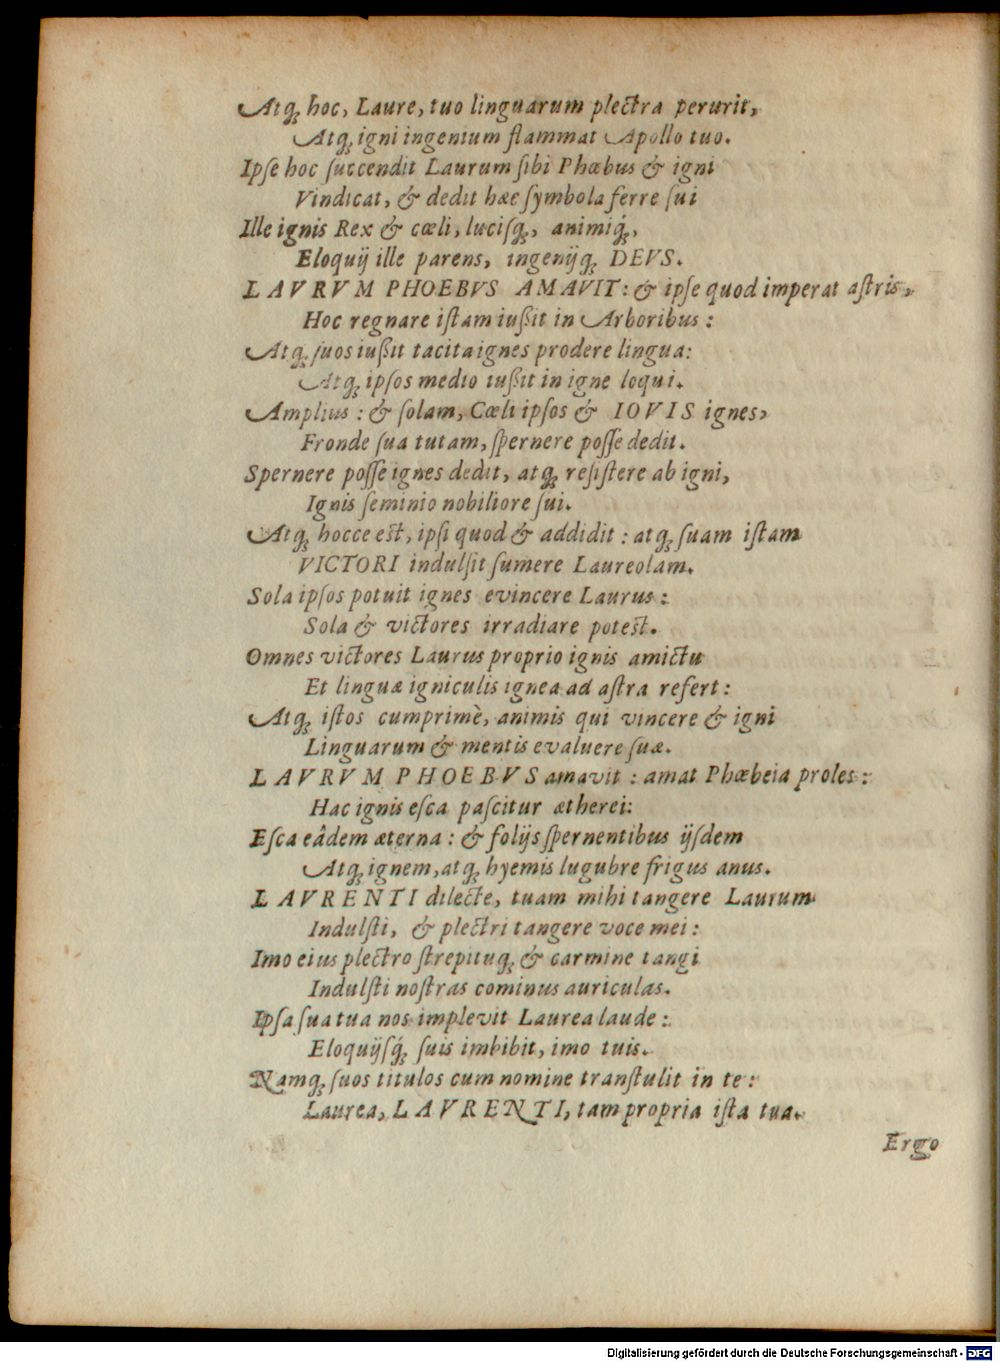 Atq́; hoc, Laure, tuo linguarum plectra perurit,
Atq́; igni ingenium flammat Apollo tuo.
Ipſe hoc ſuccendit Laurum ſibi Phœbus & igni
Vindicat, & dedit hæc ſymbola ferre ſui
Ille ignis Rex & cœli, luciſq́;, animiq́;,
Eloquij ille parens, ingenijq́; DEVS.
LAVRVM PHOEBVS AMAVIT: & ipſe quod imperat aſtris,
Hoc regnare iſtam iußit in Arboribus:
Atq́; ſuos iußit tacita ignes prodere lingua:
Atq́; ipſos medio iußit in igne loqui.
Amplius: & ſolam, Cœli ipſos & IOVIS ignes,
Fronde ſua tutam, ſpernere poſſe dedit.
Spernere poſſe ignes dedit, atq́; reſiſtere ab igni,
Ignis ſeminio nobiliore ſui.
Atq́; hocce est, ipſi quod & addidit: atq́; ſuam iſtam
VICTORI indulſit ſumere Laureolam.
Sola ipſos potuit ignes evincere Laurus:
Sola & victores irradiare potest.
Omnes victores Laurus proprio ignis amictu
Et linguæ igniculis ignea ad aſtra refert:
Atq́; iſtos cumprimè, animis qui vincere & igni
Linguarum & mentis evaluere ſuæ.
LAVRVM PHOEBVS amavit: amat Phœbeia proles:
Hac ignis eſca paſcitur ætherei:
Eſca eâdem æterna: & folijs ſpernentibus ijſdem
Atq́; ignem, atq́; hyemis lugubre frigus anus.
LAVRENTI dilecte, tuam mihi tangere Laurum
Indulſti, & plectri tangere voce mei:
Imo eius plectro ſtrepituq́; & carmine tangi
Indulſti noſtras cominus auriculas.
Ipſa ſua tua nos implevit Laurea laude:
Eloquijſq́; ſuis imbibit, imo tuis.
Namq́; ſuos titulos cum nomine tranſtulit in te:
Laurea, LAVRENTI, tam propria iſta tua.
Ergo
Digitalisierung gefördert durch die Deutsche Forschungsgemeinschaft - DFG